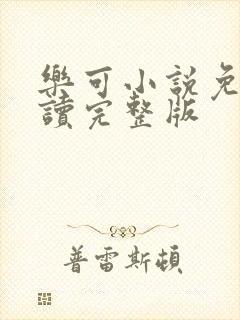 樂可小説免
讀完整版
普雷斯頓